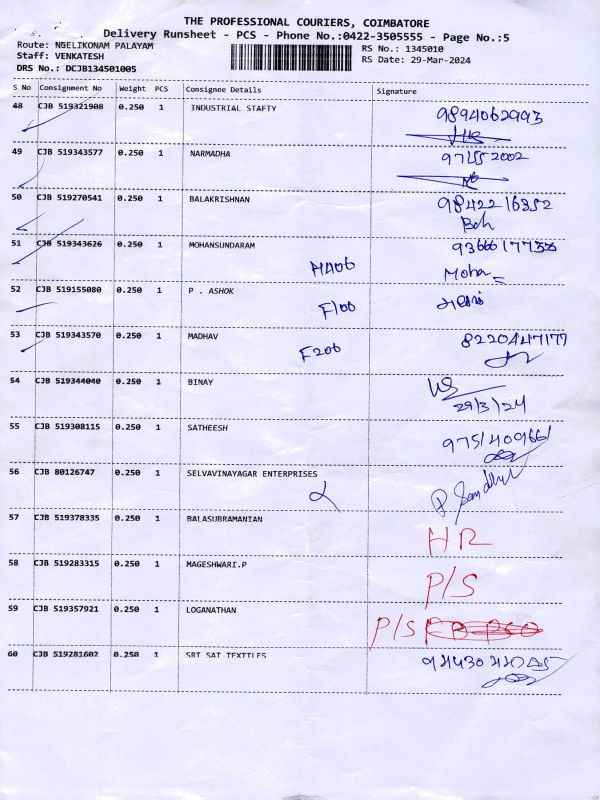 THE PROFESSIONAL COURIERS, COIMBATORE
Delivery Runsheet - PCS - Phone No.:0422-3505555 - Page No.:5
Route: NGELIKONAM PALAYAM RS No.: 1345010
Staff: VENKATESH RS Date: 29-Mar-2024
DRS No.: DCJB134501005
S No Consignment No Weight PCS Consignee Details Signature
48 CJB 519321908 0.250 1 INDUSTRIAL STAFTY 9894062993
49 CJB 519343577 0.250 1 NARMADHA 971552002
50 CJB 519270541 0.250 1 BALAKRISHNAN 9842216352
51 CJB 519343626 0.250 1 MOHANSUNDARAM
MA06 Moha
52 CJB 519155080 0.250 1 P . ASHOK F100
53 CJB 519343570 0.250 1 MADHAV F206 8220447177
54 CJB 519344040 0.250 1 BINAY
29/3/24
55 CJB 519308115 0.250 1 SATHEESH 9751409661
56 CJB 80126747 0.250 1 SELVAVINAYAGAR ENTERPRISES
57 CJB 519378335 0.250 1 BALASUBRAMANIAN HR
58 CJB 519283315 0.250 1 MAGESHWARI.P P/S
59 CJB 519357921 0.250 1 LOGANATHAN P/S
60 CJB 519281602 0.250 1 SRI SAI TEXTILES